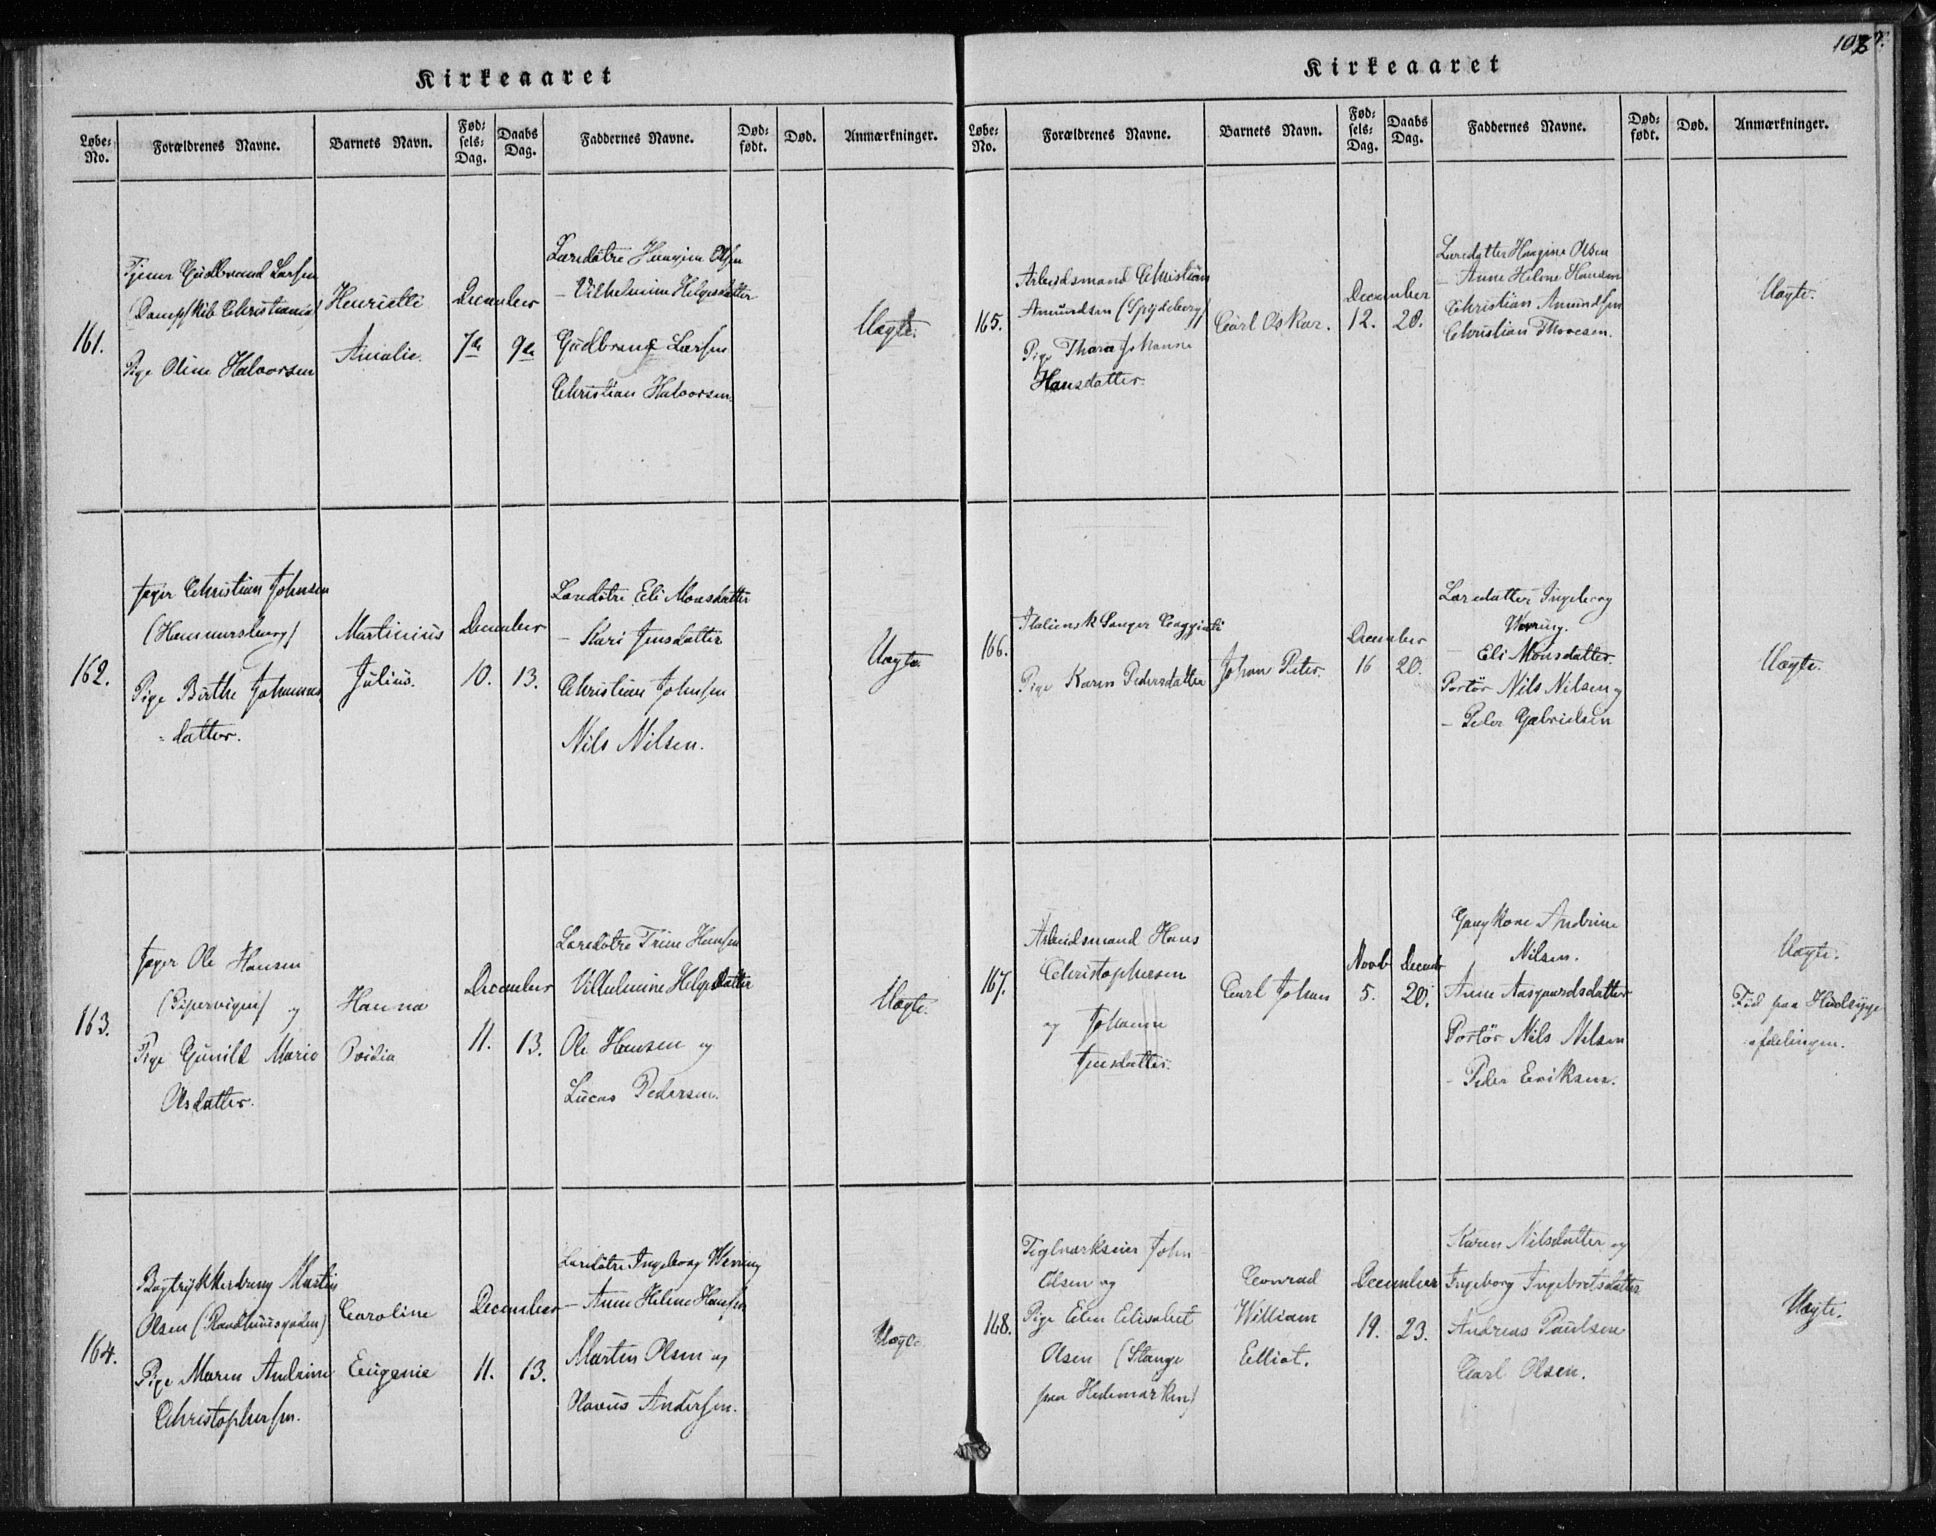 107.
Kirkeaaret
Løbe-No. Forældrenes Navne. Barnets Navn. Fødsels-Dag. Daabs Dag. Faddernes Navne. Dødfødt. Død. Anmærkninger.
161.
Tjener Gudbrand Larsen
(Dampskib Christiania)
Pige Oline Halvorsen
Henriette
Amalie.
December
7de 9de
Læredøtre Haagine Olsen
— Vilhelmine Helgesdatter
Gudbrand Larsen
Christian Halvorsen.
Uægte.
162.
Jæger Christian Johnsen
(Hammersborg)
Pige Birthe Johannes
-datter.
Martinius
Julius.
December
10. 13.
Læredøtre Eli Monsdatter
— Kari Jensdatter
Christian Johnsen
Nils Nilsen.
Uægte.
163.
Jæger Ole Hansen
(Pipervigen) og
Pige Gunild Marie
Olsdatter.
Hanna
December
11. 13.
Læredøtre Trine Hansen
Vilhelmine Helgesdatter
Ole Hansen og
Lucas Pedersen.
Uægte.
164.
Bogtrykkerdreng Martin
Olsen (Raadhuusgaden)
Pige Maren Andrine
Christophersen.
Caroline
Eugenie
December
11. 13.
Læredøtre Ingeborg Werring
— Anne Helene Hansen
Martin Olsen og
Olavus Andersen.
Uægte.
Kirkeaaret
Løbe-No. Forældrenes Navne. Barnets Navn. Fødsels-Dag. Daabs Dag. Faddernes Navne. Dødfødt. Død. Anmærkninger.
165.
Arbeidsmand Christian
Amundsen (Spydeberg)
Pige Thara Johanne
Hansdatter.
Carl Oskar.
December
12. 20.
Læredatter Haagine Olsen
— Anne Helene Hansen
Christian Amundsen
Christian Thoresen.
Uægte.
166.
Italiensk Sanger
Pige Karen Pedersdatter
Johan Peter.
December
16 20.
Læredatter Ingeborg
Werring.
— Eli Monsdatter.
Portør Nils Nilsen og
— Peder Gabrielsen
Uægte.
167.
Arbeidsmand Hans
Christophersen
og Johanne
Jensdatter.
Carl Johan
Novb Decemb
5. 20.
Gangkone Andrine
Nilsen.
Anne Aasgaardsdatter
Portør Nils Nilsen
— Peder Eriksen.
Uægte.
Fød paa Hudsyge
afdelingen.
168.
Teglværkseier John
Olsen og
Pige Elen Elisabet
Olsen (Stange
paa Hedemarken)
Conrad
William
Elliot.
December
19. 23.
Karen Nilsdatter og
Ingeborg Ingebretsdatter
Andreas Paulsen
Carl Olsen.
Uægte.